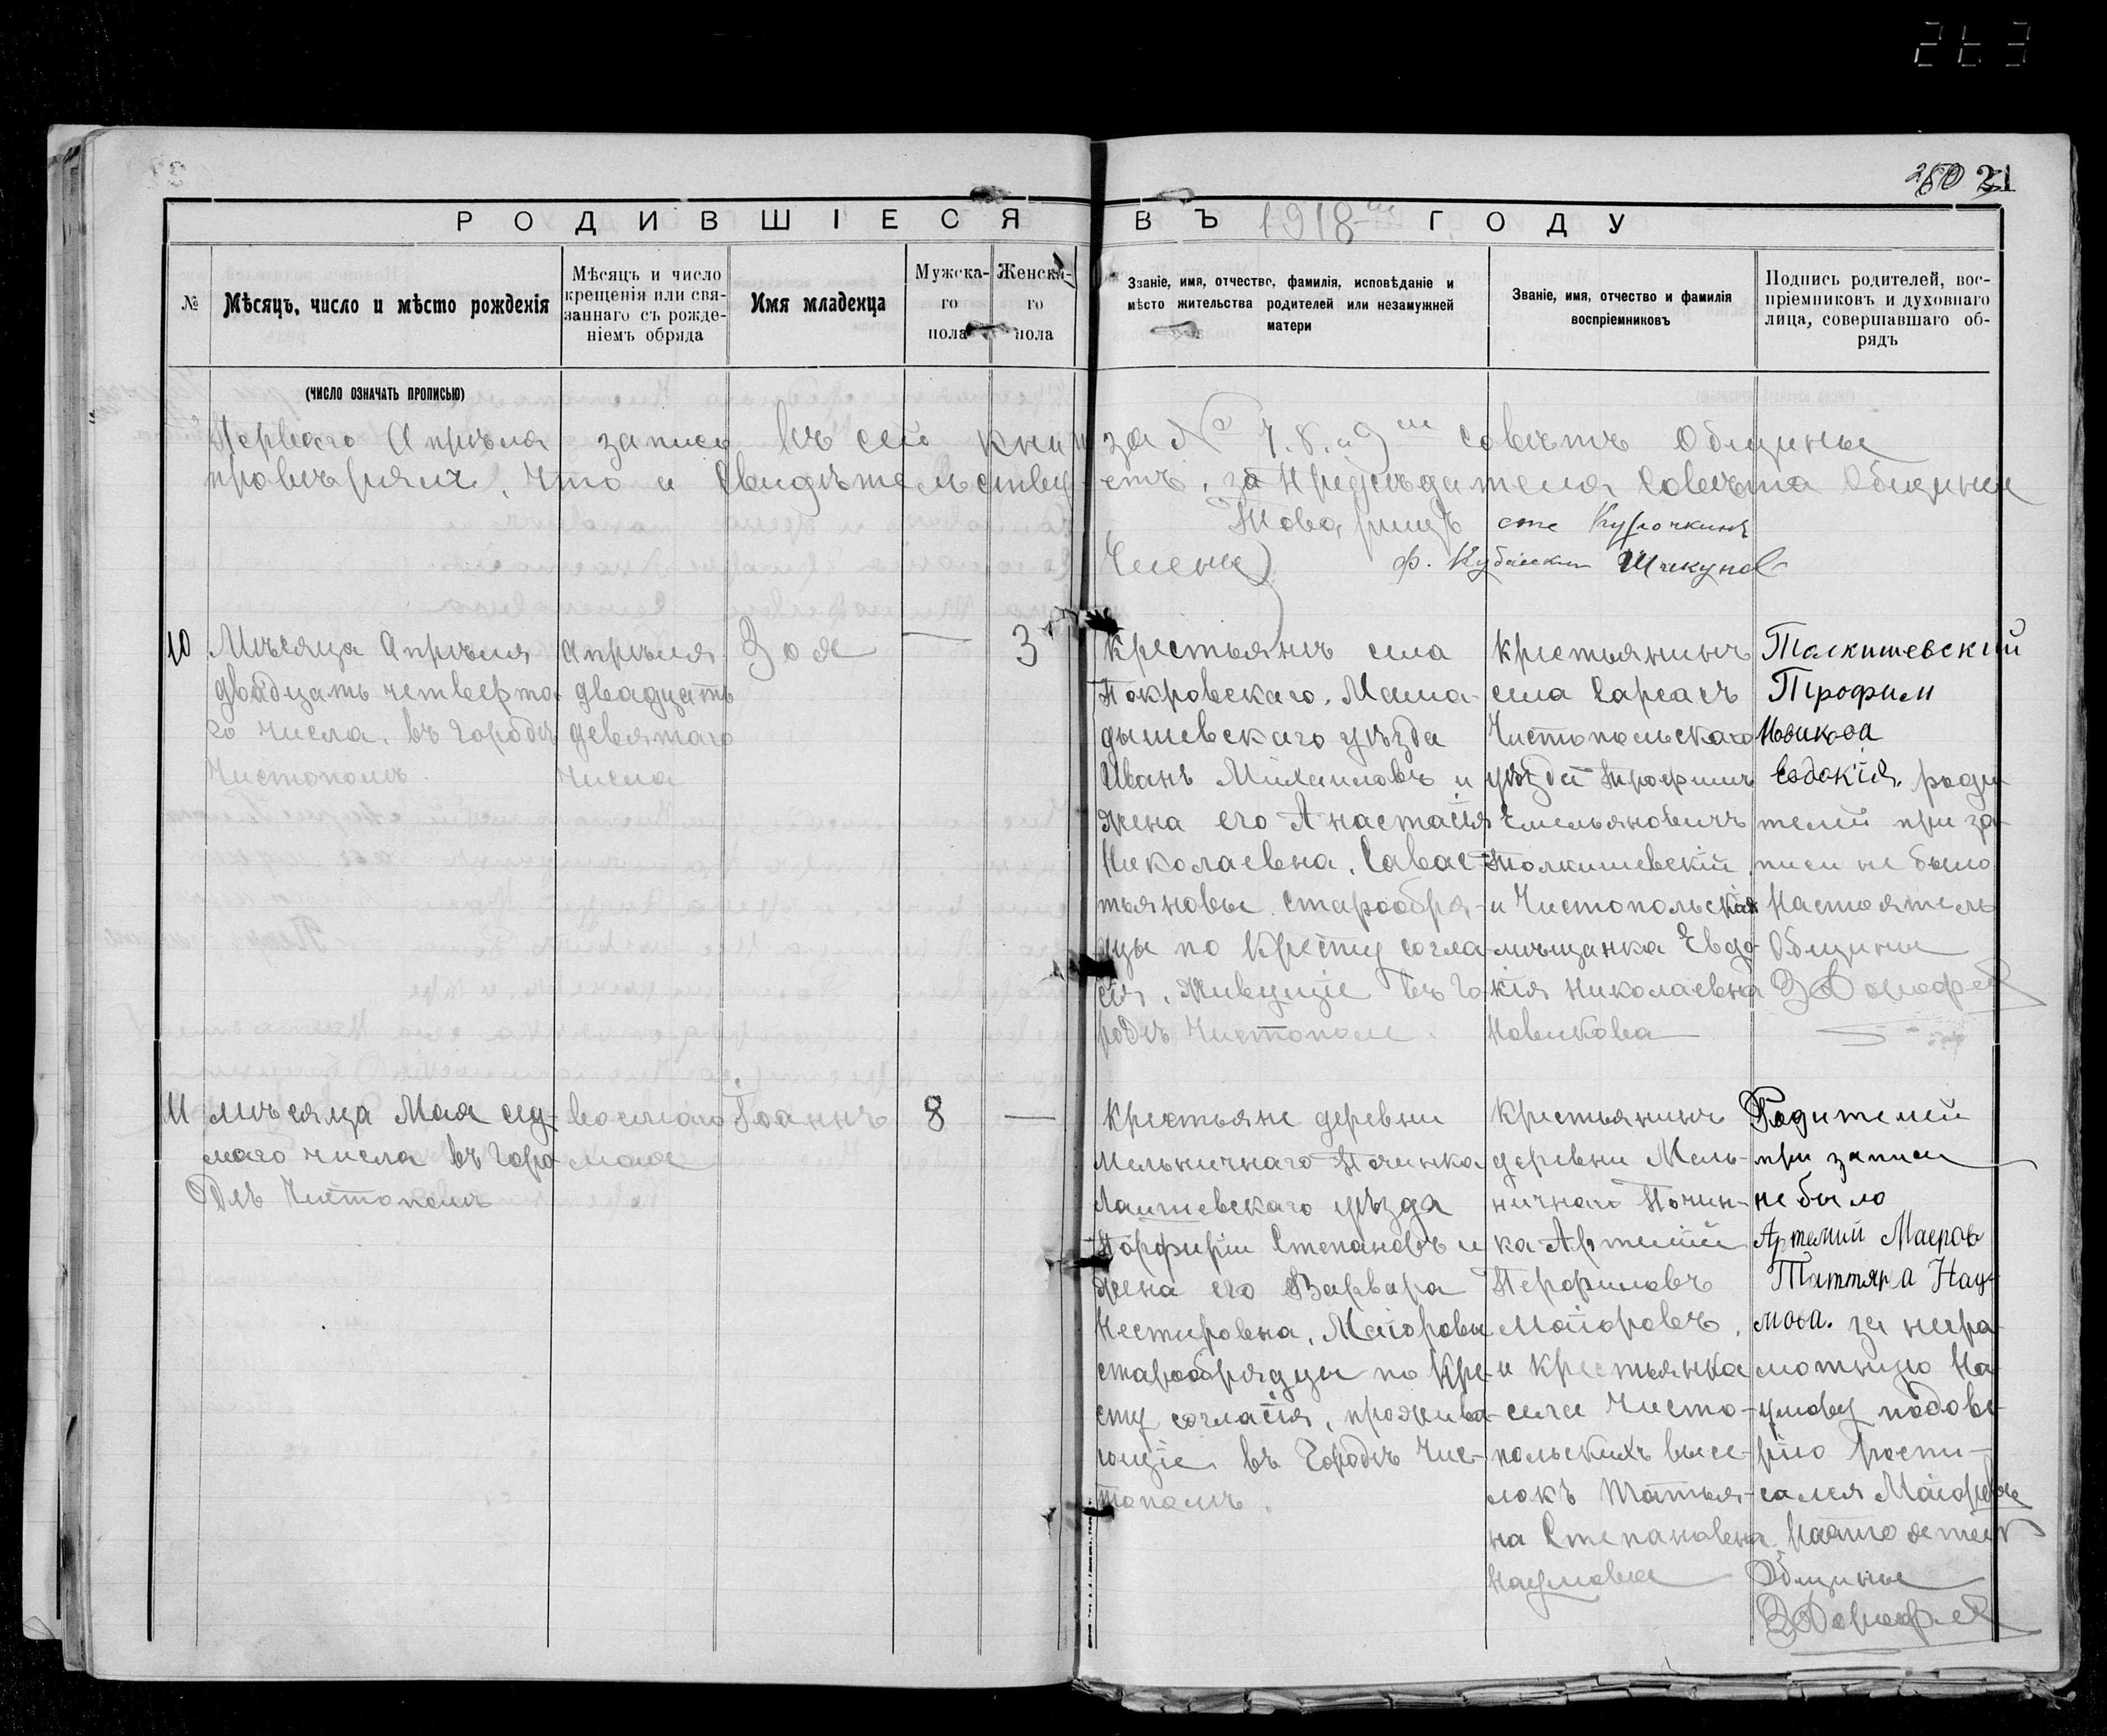 263
280 21
РОДИВШІЕСЯ ВЪ 1918 ГОДУ
№
Мѣсяцъ, число и мѣсто рожденія
Мѣсяцъ и число
крещенія или свя-
заннаго съ рожде-
ніемъ обряда
Имя младенца
Мужска-
го
пола
Женска-
го
пола
Званіе, имя, отчество, фамилія, исповѣданіе и
мѣсто жительства родителей или незамужней
матери
Званіе, имя, отчество и фамилія
воспріемниковъ
Подпись родителей, вос-
пріемниковъ и духовнаго
лица, совершавшаго об-
рядъ
(ЧИСЛО ОЗНАЧАТЬ ПРОПИСЬЮ)
Перваго Апрѣля запись въ сей книг за № 7. 8. и 9 Совѣтъ Общины
провѣрялъ, что и свидѣтельству етъ, за Предсѣдателя Совѣта Общины
Товарищъ Курочкинъ
Члены Ф. Шикунов
10
Мѣсяца Апрѣля
двадцать четверта
го числа, въ городѣ
Чистополѣ
Апрѣля
двадцать
девятаго
числа
Зоя
—
3
Крестьянъ села
Покровскаго, Мама-
дышевскаго уѣзда
Иванъ Михаиловъ и
жена его Анастасія
Николаевна, Савас-
тьяновы старообря-
дцы по Кресту согла-
сія, живущіе въ го-
родѣ Чистополе.
Крестьянинъ
села Сарсасъ
Чистопольскаго
уѣзда Трофимъ
Емельяновичъ
Толкишевскій
и Чистопольская
мѣщанка Евдо-
кія Николаевна
Новикова
Талкишевский
Трофим
Новикова
Евдокія, роди
телей при за-
писи не было
Настоятель
Общины
11
мѣсяца Мая сед-
маго числа въ горо-
дѣ Чистополѣ
восмаго
мая
Іоаннъ
8
—
Крестьяне деревни
Мельничнаго Починка
Лаишевскаго уѣзда
Порфирій Степановъ и
жена его Варвара
Нестировна, Маіоровы
старообрядцы по Кре-
сту согласія, прожива-
ющіе въ городѣ Чис-
тополѣ.
Крестьянинъ
деревни Мель-
ничнаго Почин-
ка Артемій
Перфиловъ
Маіоровъ,
и крестьянка
села Чисто-
польскихъ высе-
локъ Татья-
на Степановна
Наумова
Родителей
при записи
не было
Артемий Маеров
Таттяна Нау-
мова. за негра-
мотную На-
умову подове-
рію роспи-
сался Маіоровъ
Настоятель
Общины